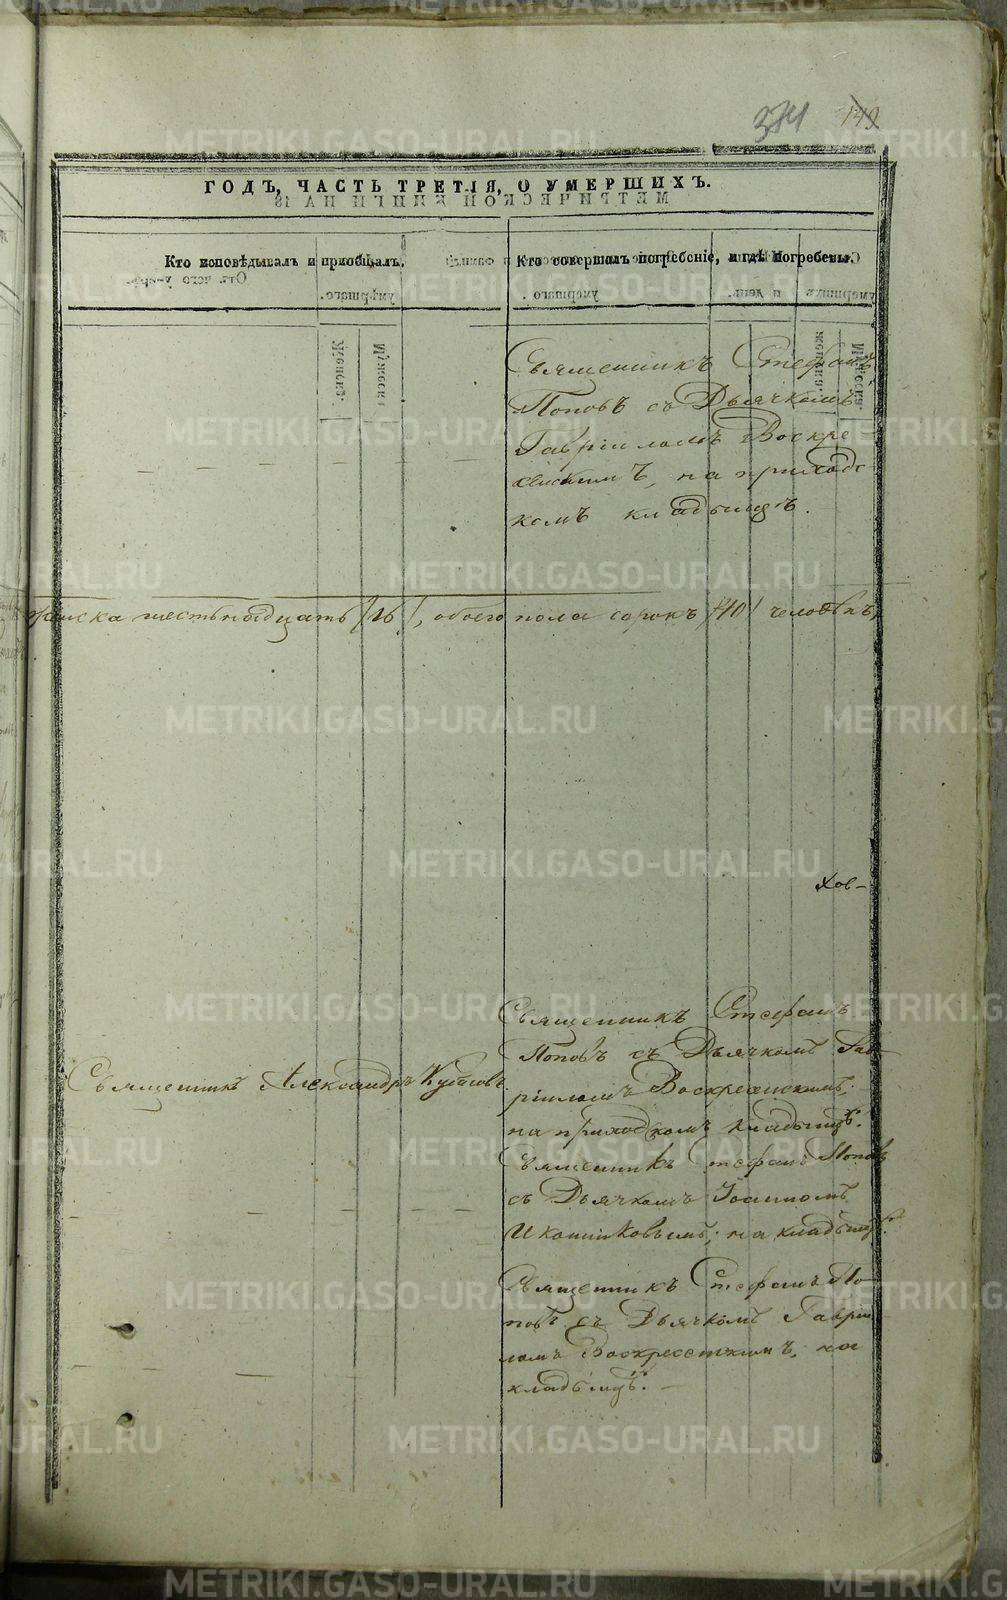 374 149
ГОДЪ, ЧАСТЬ ТРЕТІЯ, О УМЕРШИХЪ.
Кто исповѣдывалъ и пріобщалъ.
Кто совершалъ погребеніе, и гдѣ погребены.
Священникъ Стефанъ
Поповъ съ Дьячкомъ
Гавріиломъ Воскре
сенскимъ, на приходс-
комъ кладбищѣ.
женска шестьнадцать /16/, обоего пола сорокъ /40/ человѣкъ,
Священникъ Александръ Кубасовъ
Священникъ Стефанъ
Поповъ съ Дьячкомъ Гав-
ріиломъ Воскресенскимъ,
на приходскомъ кладбищѣ.
Священникъ Стефанъ Поповъ
съ Дьячкомъ Іоанномъ
Иконниковымъ, на кладбищѣ.
Священникъ Стефанъ По-
повъ съ Дьячкомъ Гаврiи
ломъ Воскресенскимъ, на
кладбищѣ.
METRIKI.GASO-URAL.RU